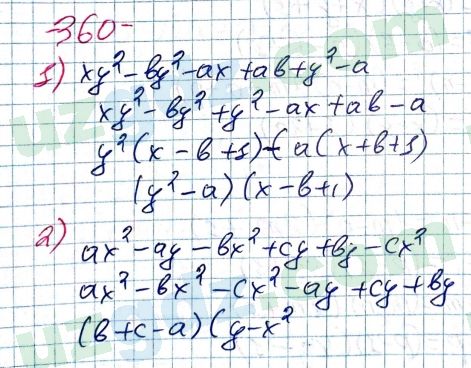 -360-
1) xy² - by² - ax + ab + y² - a
xy² - by² + y² - ax + ab - a
y²(x - b + 1) - (a(x + b + 1)
(y² - a)(x - b + 1)
2) ax² - ay - bx² + cy + by - cx²
ax² - bx² - cx² - ay + cy + by
(b + c - a)(y - x²